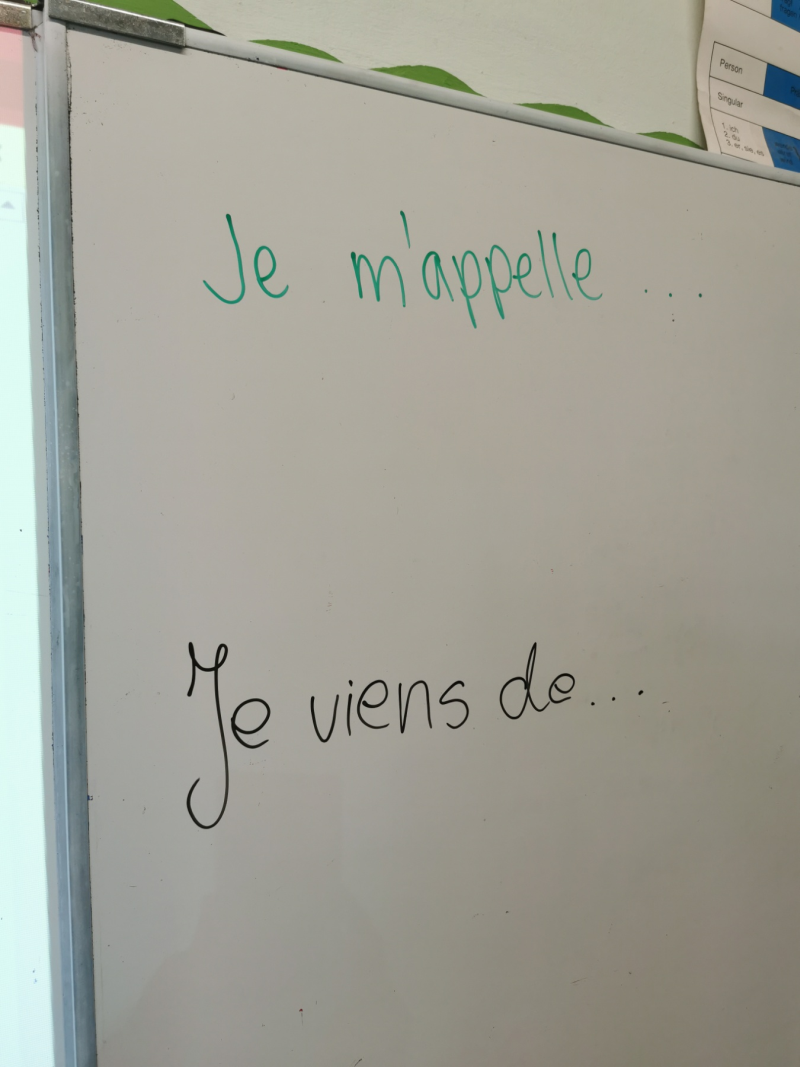 Person
Singular
1. ich
2. du
3. er, sie, es
Je m'appelle ...
Je viens de...